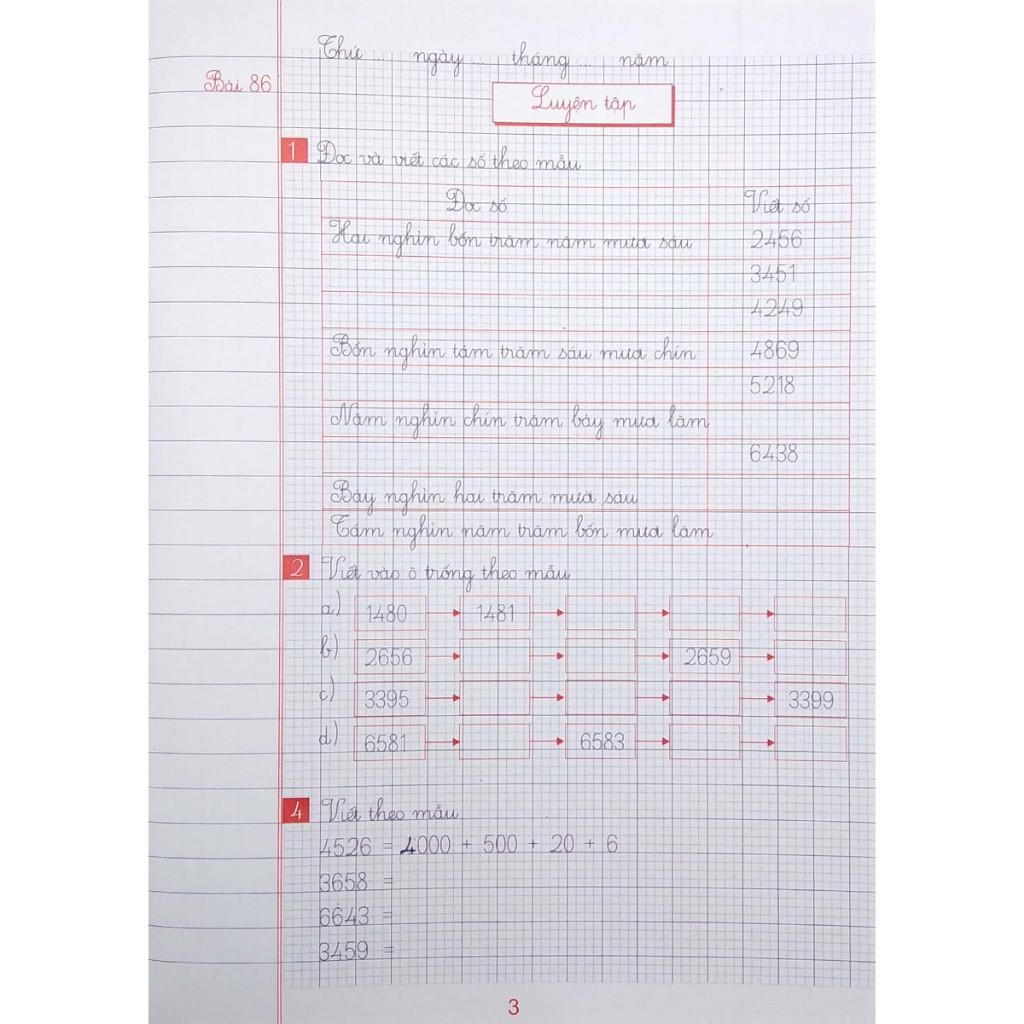 Thứ ... ngày ... tháng ... năm
Bài 86
Luyện tập
1 Đọc và viết các số theo mẫu
Đọc số Viết số
Hai nghìn bốn trăm năm mươi sáu 2456
3451
4249
Bốn nghìn tám trăm sáu mươi chín 4869
5218
Năm nghìn chín trăm bảy mươi lăm
6438
Bảy nghìn hai trăm mươi sáu
Tám nghìn năm trăm bốn mươi lăm
2 Viết vào ô trống theo mẫu
a) 1480 1481
b) 2656 2659
c) 3395 3399
d) 6581 6583
4 Viết theo mẫu
4526 = 4000 + 500 + 20 + 6
3658 =
6643 =
3459 =
3